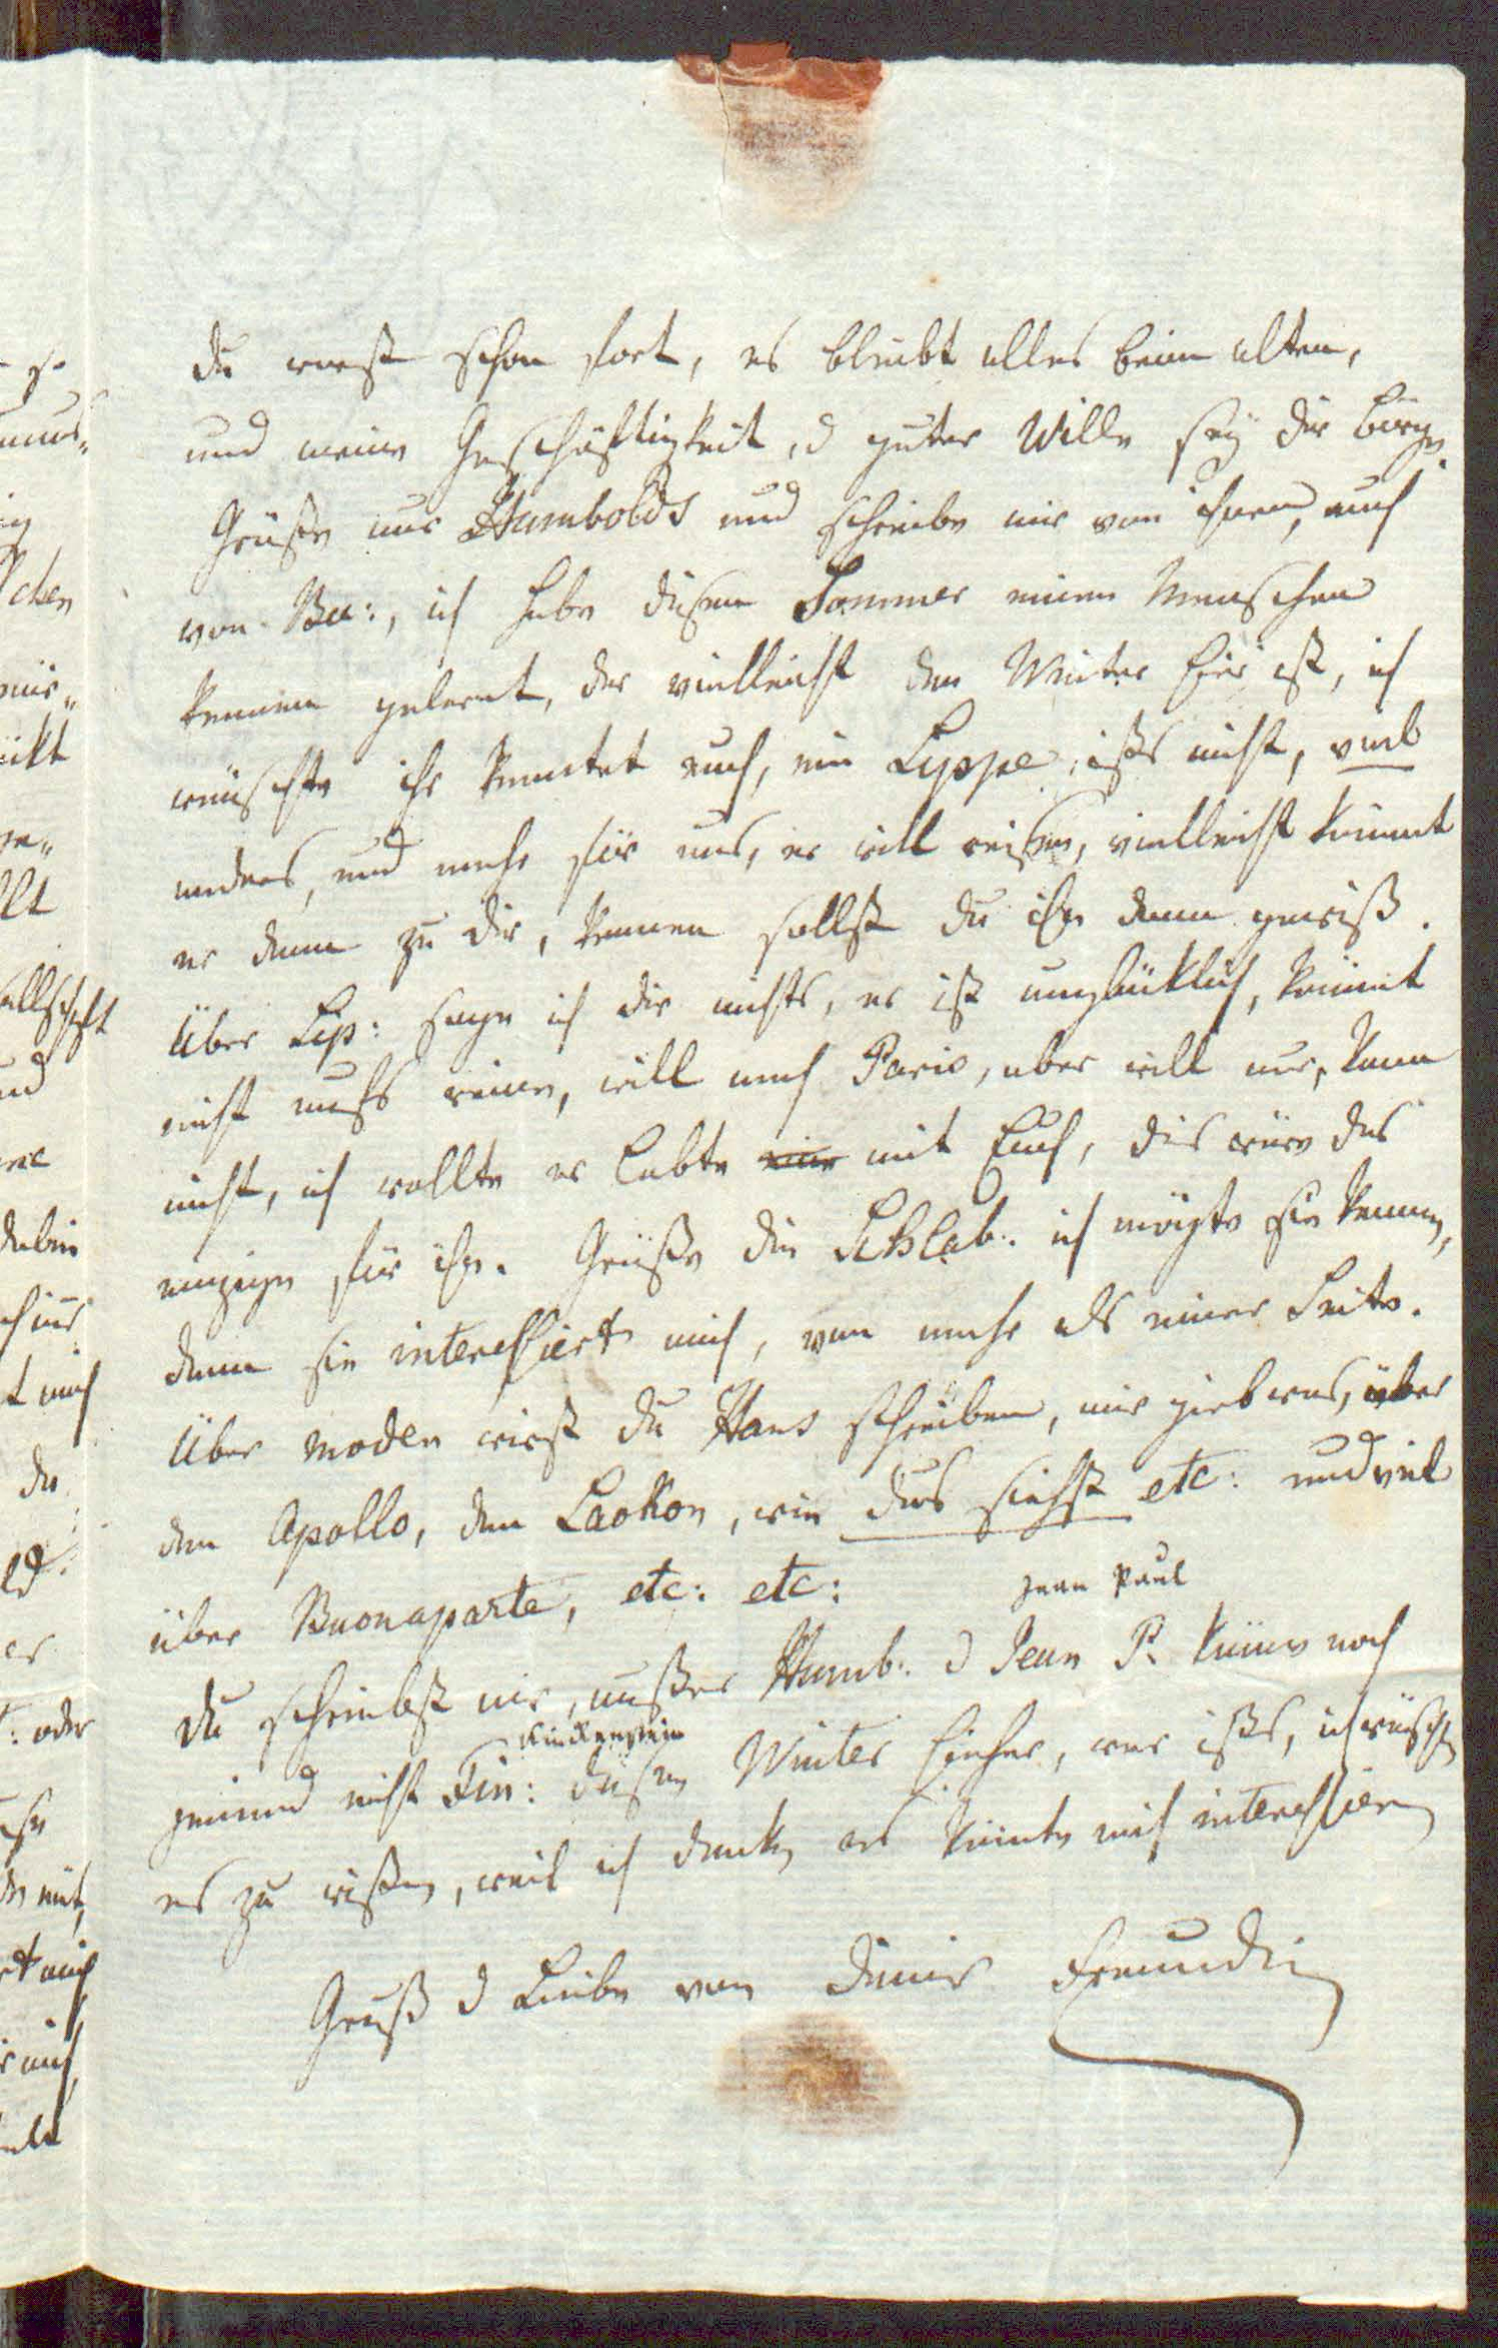 du warst schon fort, es bleibt alles beim alten,
und meine Geschäftigkeit, u guter Wille sey dir Bürge.
Grüße mir Humbolds und schreibe mir von ihnen, auch
von Bu:, ich habe diesen Sommer einen Menschen
kennen gelernt, der vielleicht den Winter hier ist, ich
wünschte ihr kenntet euch, ein Lyppe ists nicht, viel
anders, und mehr für uns, er will reisen, vielleicht kömmt
er dann zu dir, kennen sollst du ihn dann gewiß.
Über Lip: sage ich dir nichts, er ist unglüklich, kömmt
nicht aufs reine, will nach Paris, aber will nur, kann
nicht, ich wollte er lebte mit Euch, dis wäre das
einzige für ihn. Grüße die Schlab: ich mögte sie kennen,
denn sie interessiert mich, von mehr als einer Seite.
Über Moden wirst du Hans schreiben, mir gieb was, über
den Apollo, den Laokon, wie dus siehst etc: und viel
über Buonaparte, etc: etc:
Jean Paul
du schreibst mir, außer Humb: u Jean P. käme noch
Finkenstein
jemand nicht Fin: diesen Winter hieher, wer ists, ich wünschte
es zu wißen, weil ich denke es könnte mich interessieren
Gruß u Liebe von deiner Freundin